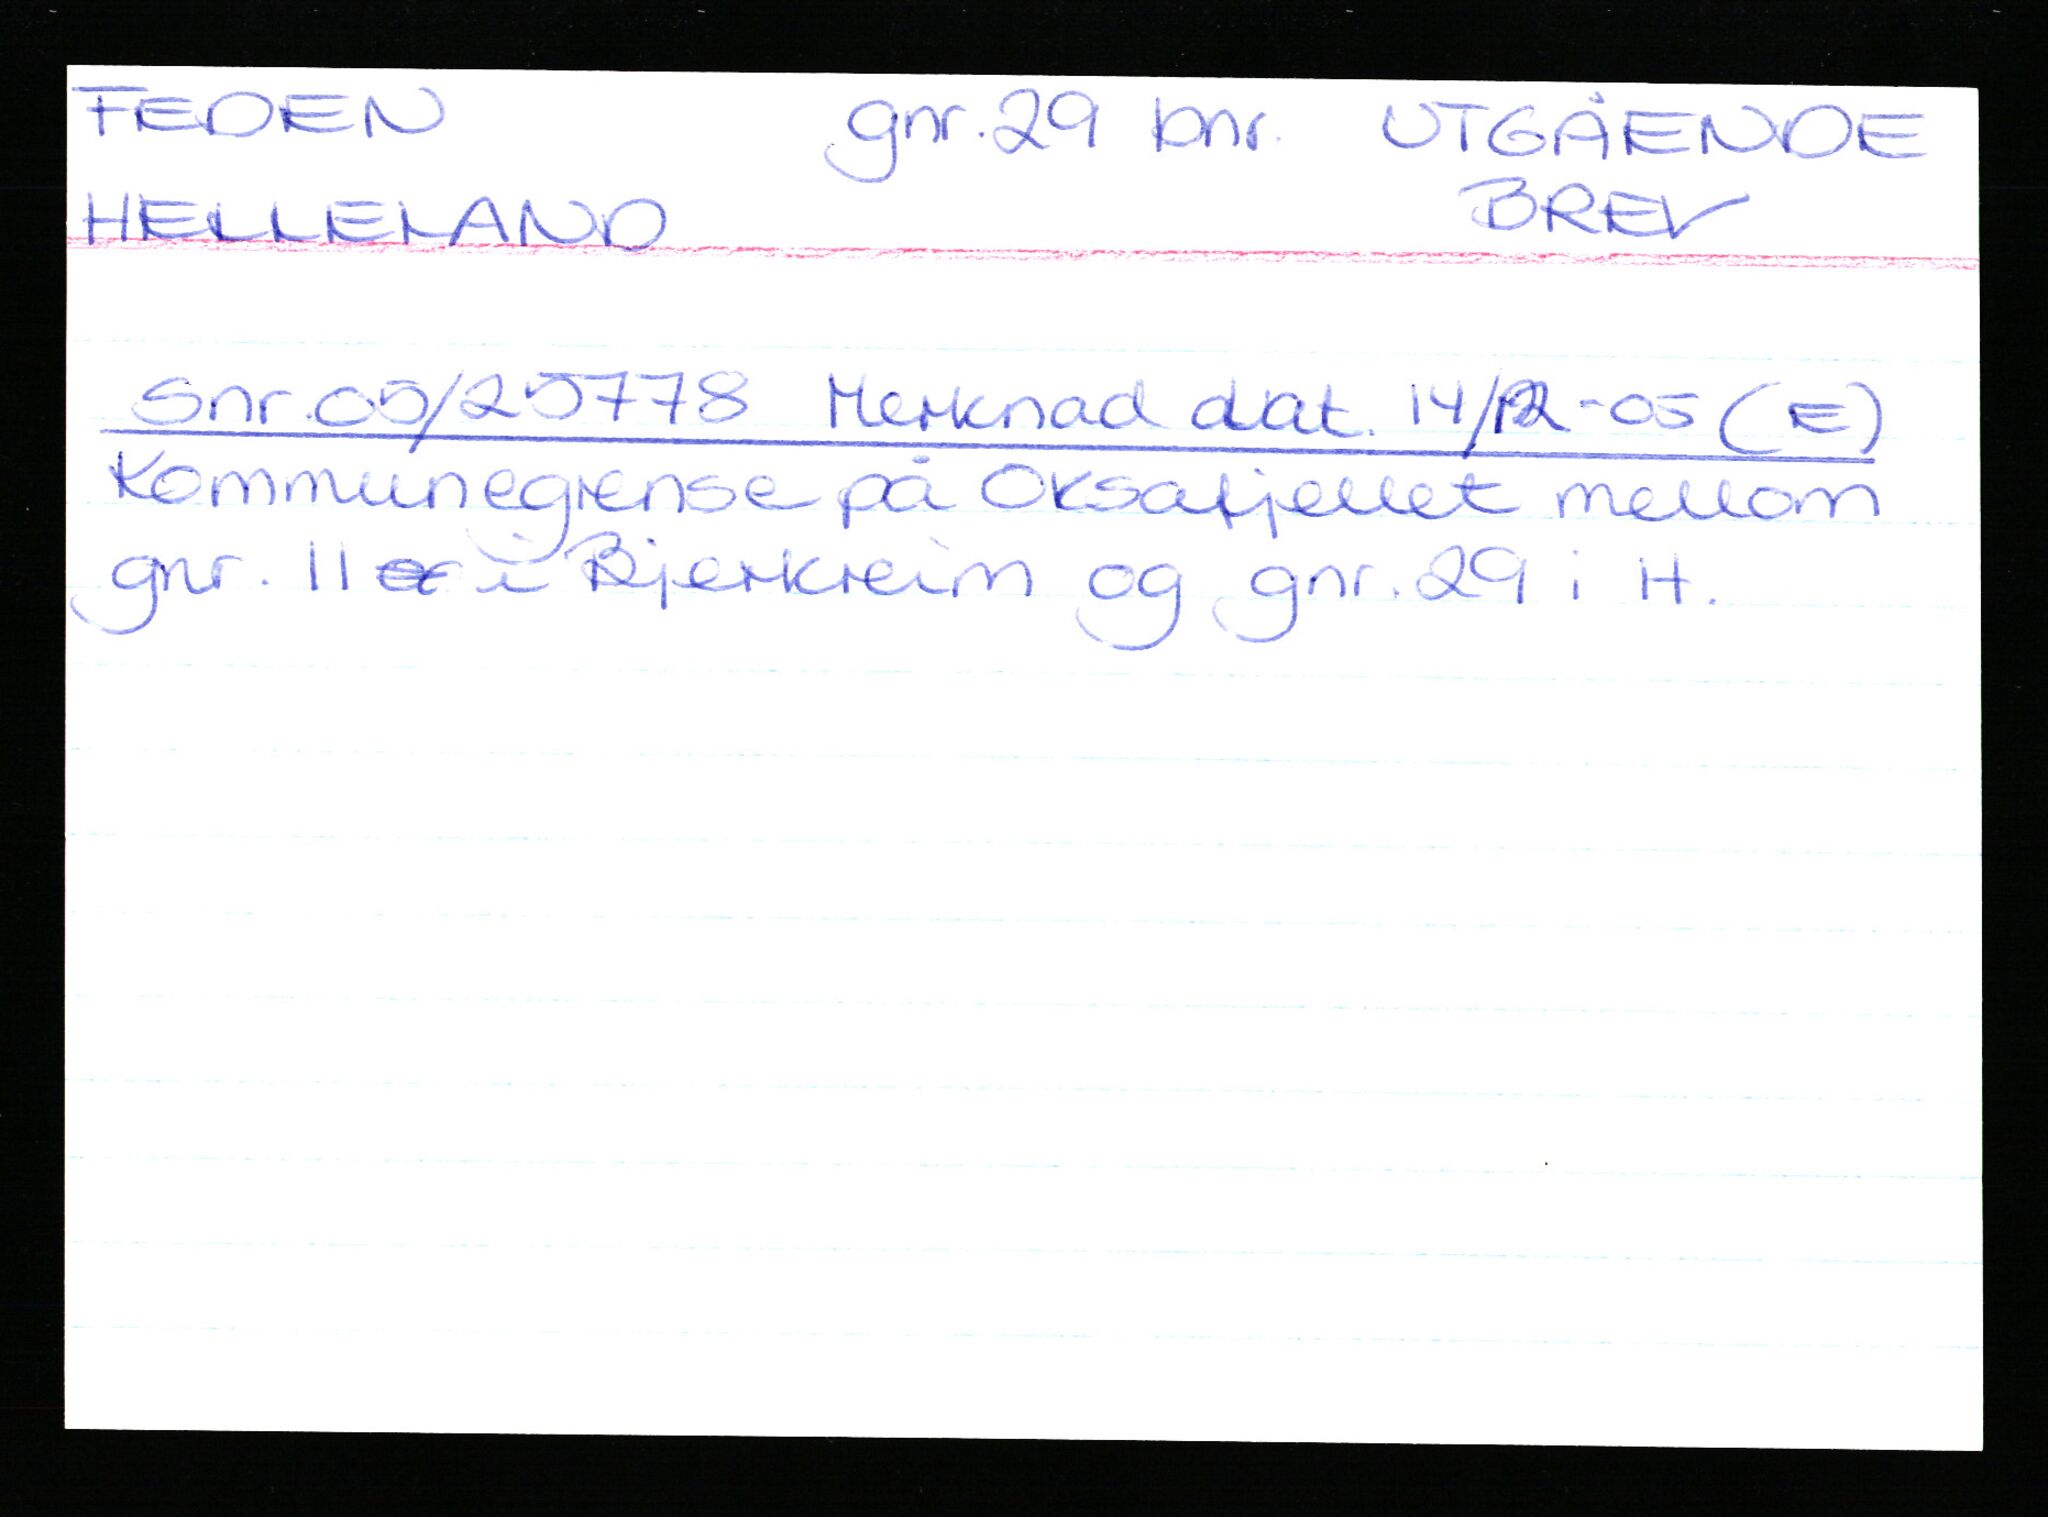 FEDEN gnr. 29 bnr. UTGÅENDE
HELLELAND BREV
Snr. 05/25778 Merknad dat. 14/12-05 (E)
Kommunegrense på Oksafjellet mellom
gnr. 11 i Bjerkreim og gnr. 29 i H.